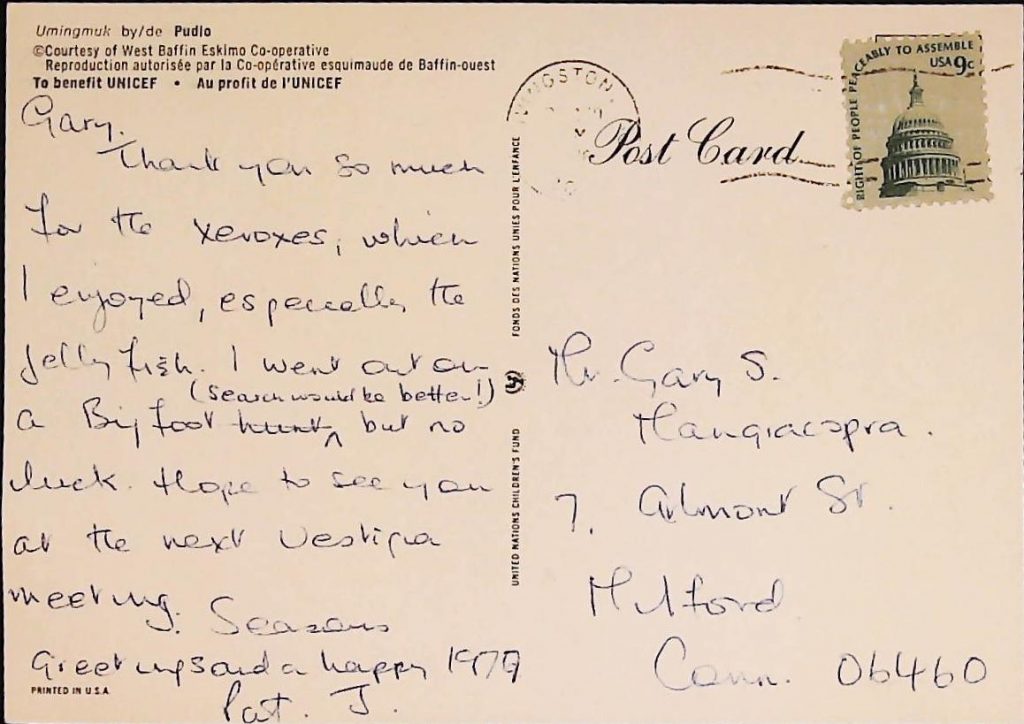 Umingmuk by/de Pudlo
©Courtesy of West Baffin Eskimo Co-operative
Reproduction autorisée par la Co-opérative esquimaude de Baffin-ouest
To benefit UNICEF • Au profit de l'UNICEF
Gary,
Thank you so much
for the xeroxes, which
I enjoyed, especially the
jelly fish. I went out on
(Search would be better!)
a Bigfoot hunt, but no
luck. Hope to see you
at the next Vestigia
meeting. Seasons
Greetings and a happy 1979
Pat. J.
PRINTED IN U.S.A.
UNITED NATIONS CHILDREN'S FUND
FONDS DES NATIONS UNIES POUR L'ENFANCE
INGSTON
Post Card
RIGHT OF PEOPLE PEACEABLY TO ASSEMBLE
USA 9c
Mr. Gary S.
Mangiacopra.
7. Almont St.
Milford
Conn. 06460